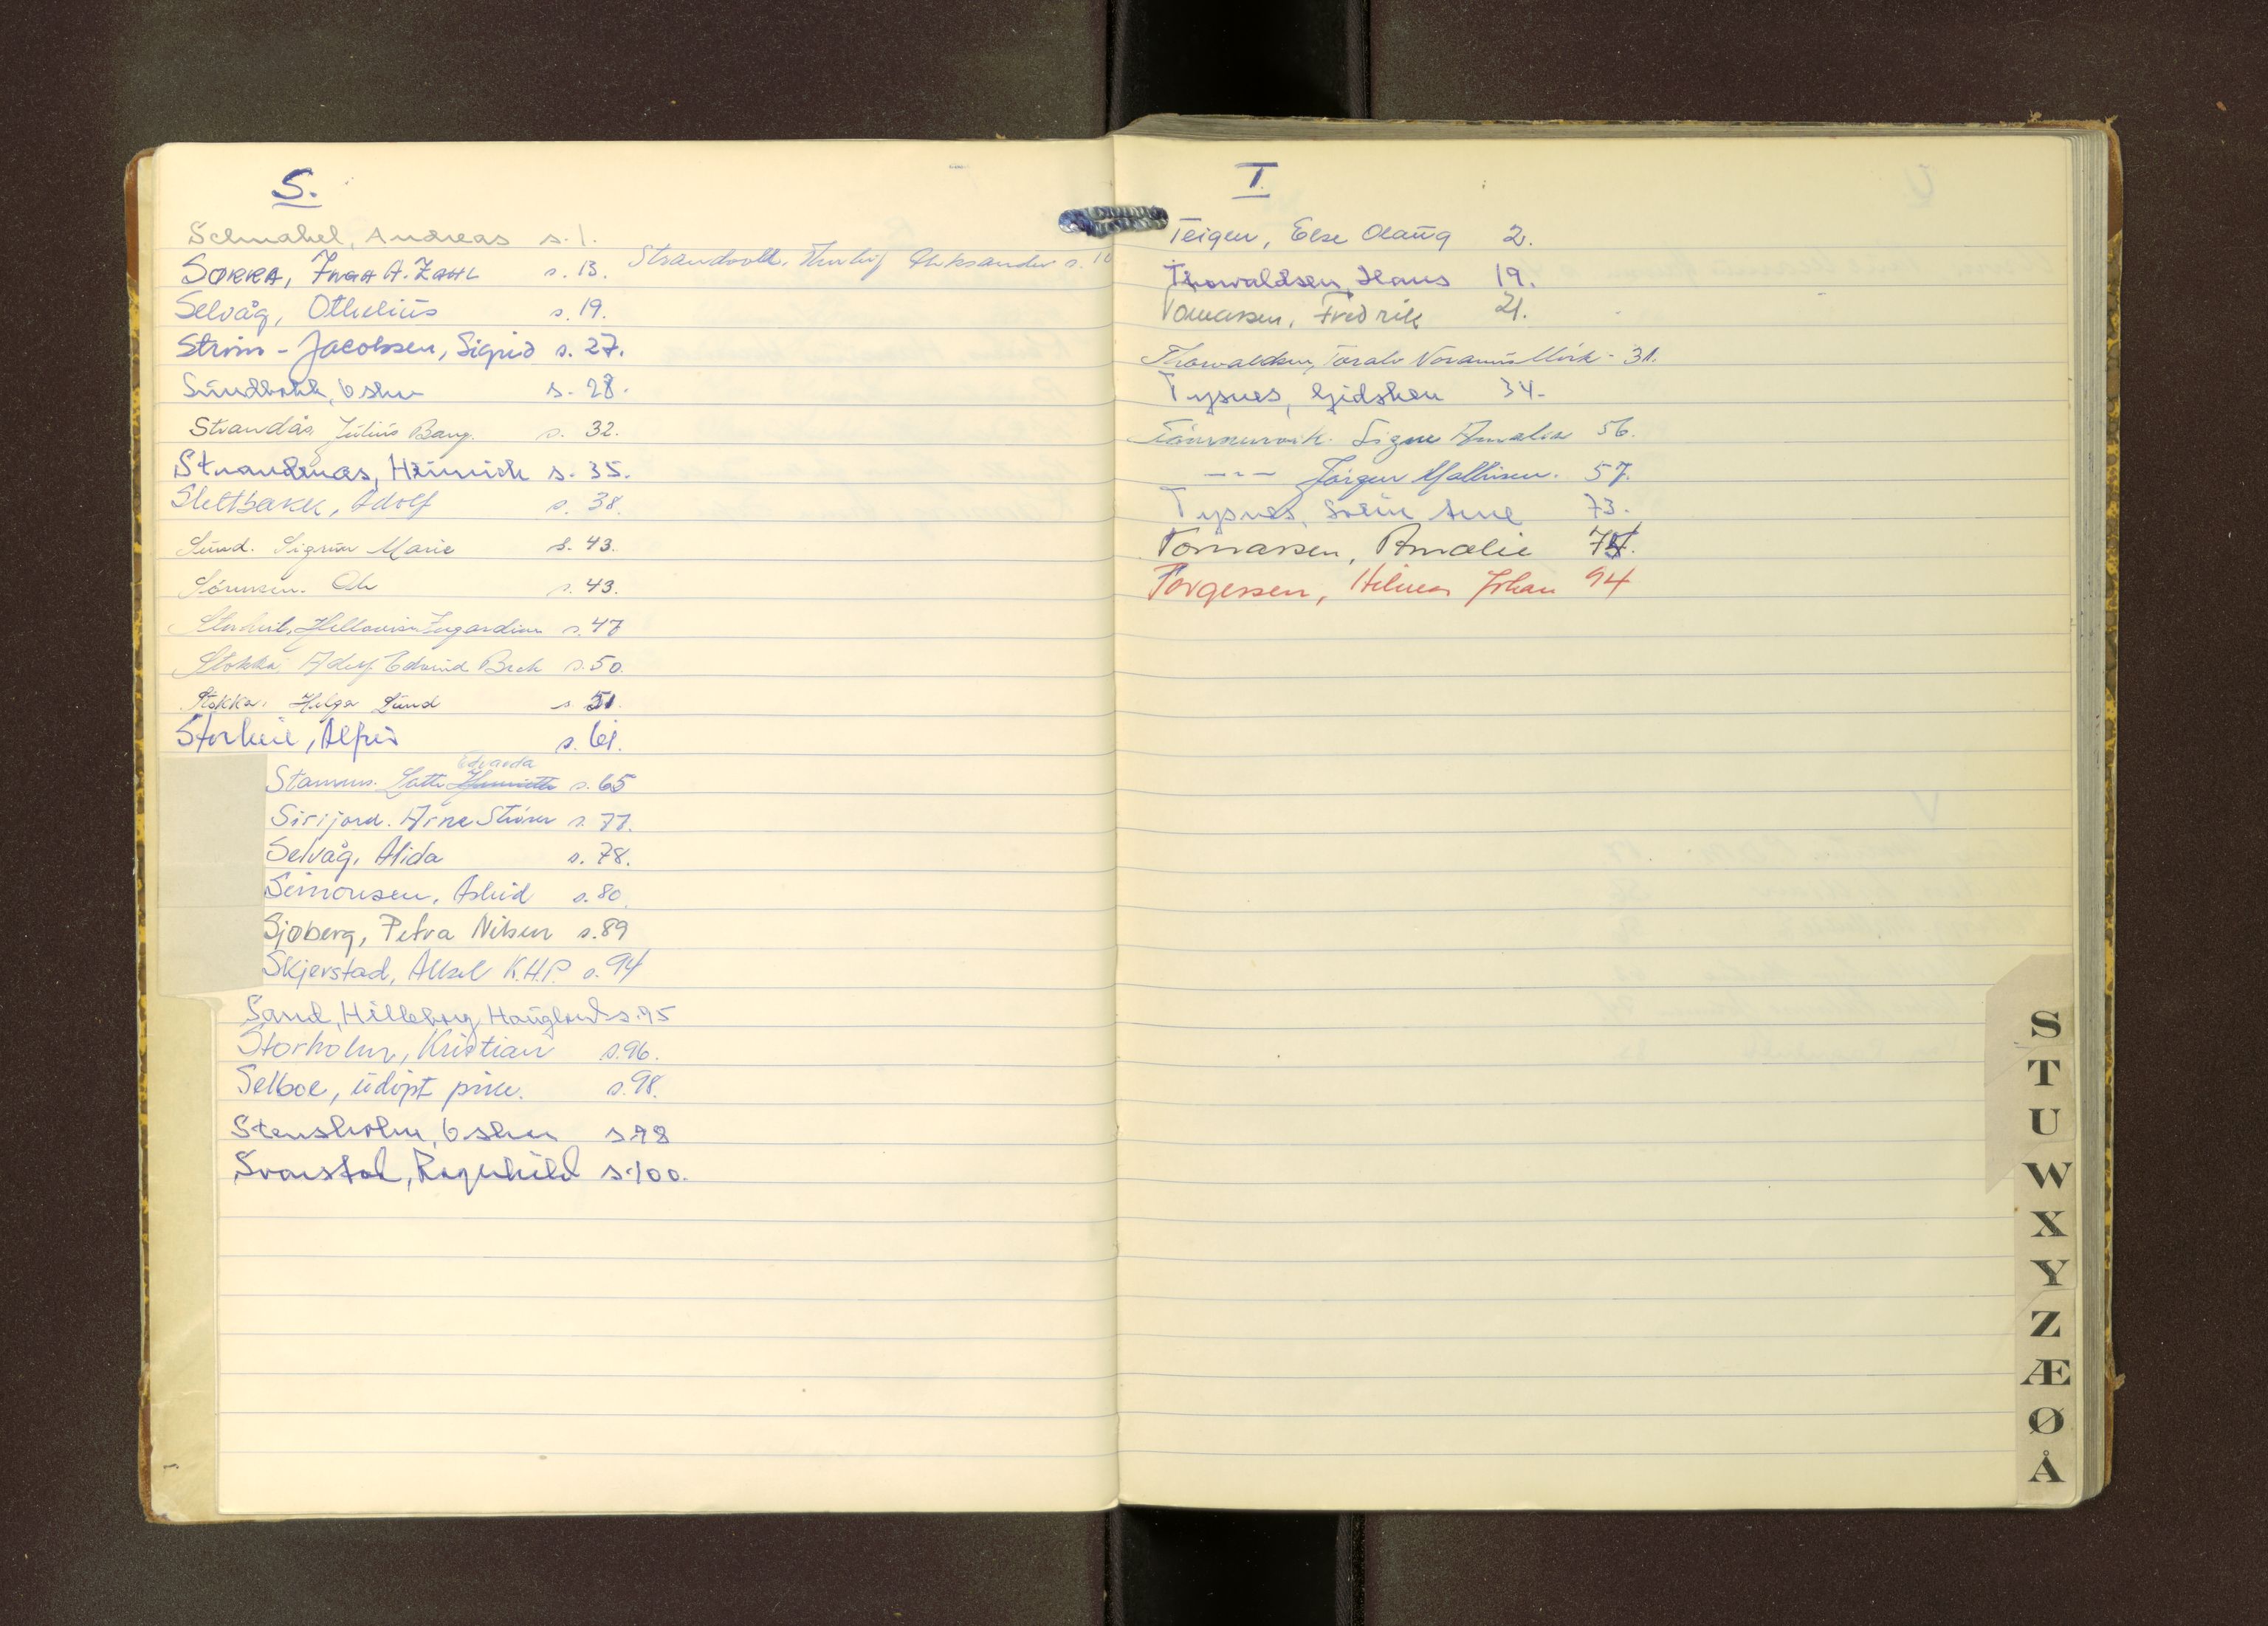 S.
Schnabel, Andreas s. 1.
SØRRA, INGA A. ZAHL s. 13. Strandvold, Aleksander s. 10
Selvåg, Othelius s. 19.
Strøm-Jacobsen, Sigrid s. 27.
Sundbakk, Oskar s. 28.
Strandås, Julius Bang. s. 32.
Strandenæs, Heinrich s. 35.
Slettbakk, Adolf s. 38.
Sund. Sigrun Marie s. 43.
Sörensen. Ole s. 43.
Storheil, s. 47
Stokka, Adolf Edvind Bech s. 50.
Stokka, Helga Lund s. 51.
Storheil, Alfred s. 61.
Edvarda
Stamnes. Lotte Henriette s. 65
Sirijord. Arne Strömer s. 77.
Selvåg, Alida s. 78.
Simonsen, Astrid s. 80.
Sjøberg, Petra Nilsen s. 89
Skjerstad, Aksel K.H.P. s. 94
Sand, Hilleborg Hauglund s. 95
Storholm, Kristian s. 96.
Selboe, udöpt pike. s. 98.
Stensholm, Oskar s. 98
Svarstad, Ragnhild s. 100.
T.
Teigen, Else Olaug 2.
Thorvaldsen, Hans 19.
Tomassen, Fredrik 21.
Thorvaldsen, Toralv Mörk - 31.
Tysnes, Gidsken 34.
Signe Amalie 56.
- - - Jörgen Mathisen. 57.
Tysnes, Svein Arne 73.
Tomassen, Amalie 74.
Torgersen, Hilmar Johan 94
S
T
U
W
X
Y
Z
Æ
Ø
Å